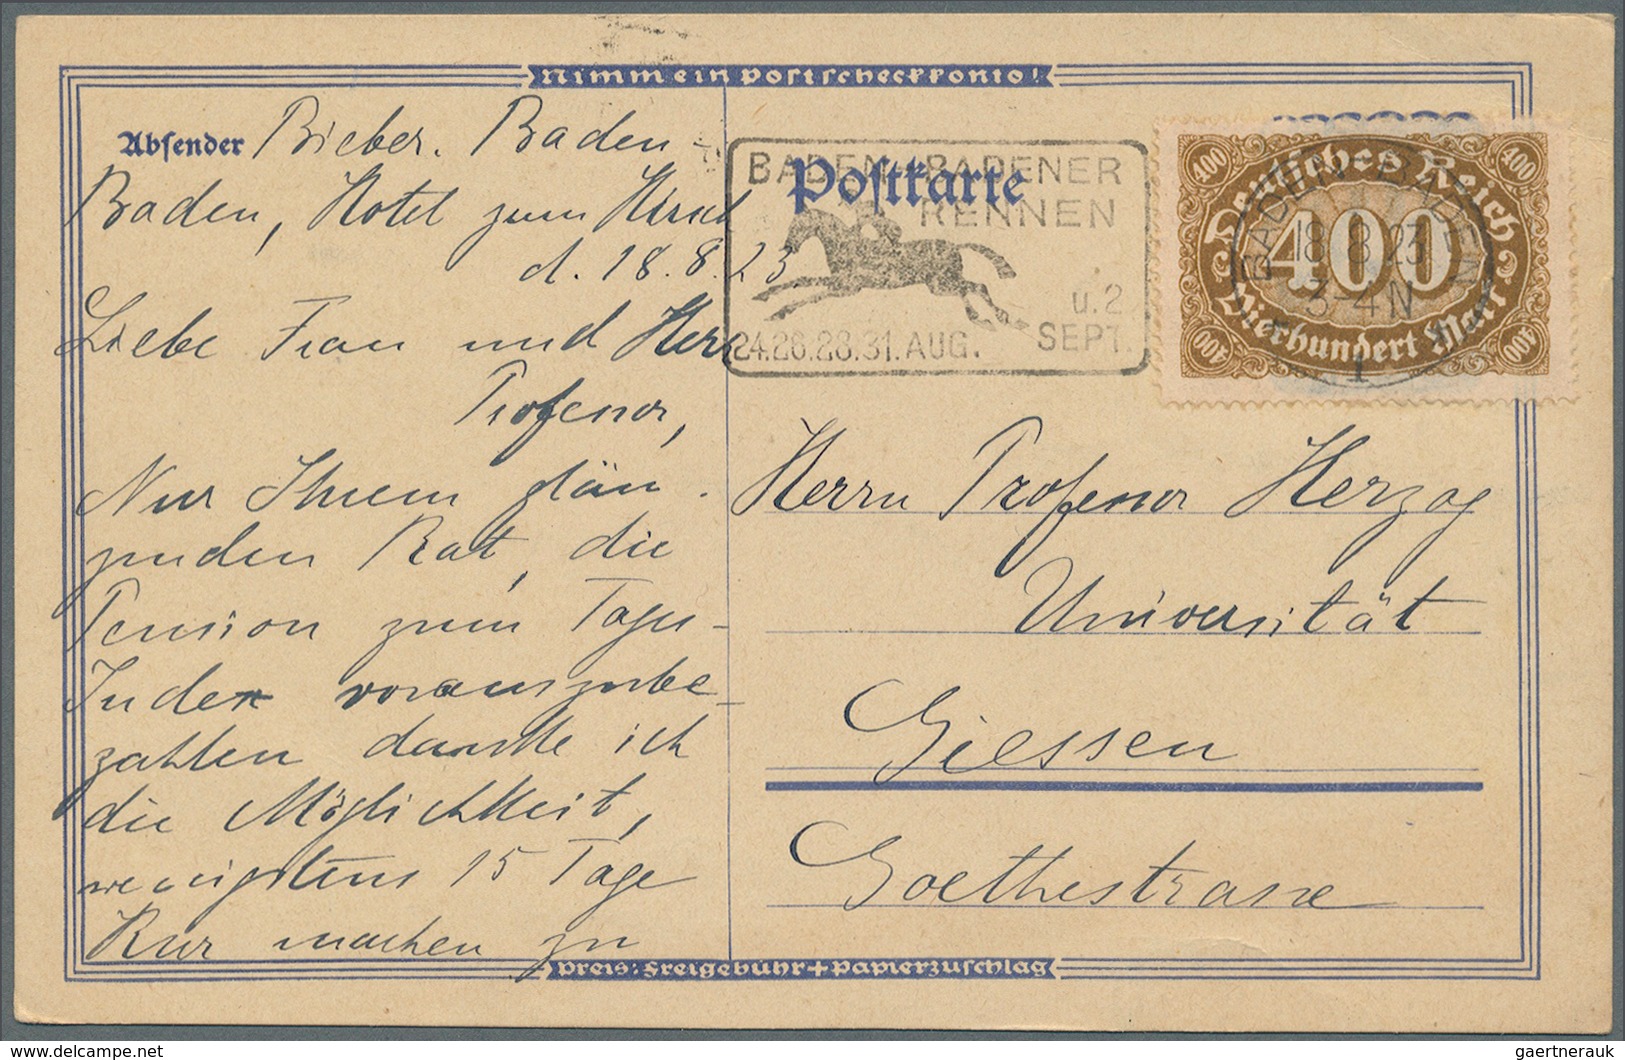 Nimm ein Postscheckkonto!
Absender Bieber. Baden-
Baden, Hotel zum Hirsch
d. 18.8.23
Liebe Frau und Herr
Professor,
Nur Ihrem glän-
zenden Rat, die
Pension zum Tages-
Index vorauszube-
zahlen danke ich
die Möglichkeit,
wenigstens 15 Tage
Kur machen zu
Postkarte
BADEN-BADENER
RENNEN
24.26.28.31. AUG.
u. 2
SEPT.
Deutsches Reich
400
400
400
400
400
Vierhundert Mark
BADEN-BADEN
18 8 23
3-4 N
1
Herrn Professor Herzog
Universität
Giessen
Goethestrasse
Preis: Freigebühr + Papierzuschlag
© picclick.com
gaertnerauk